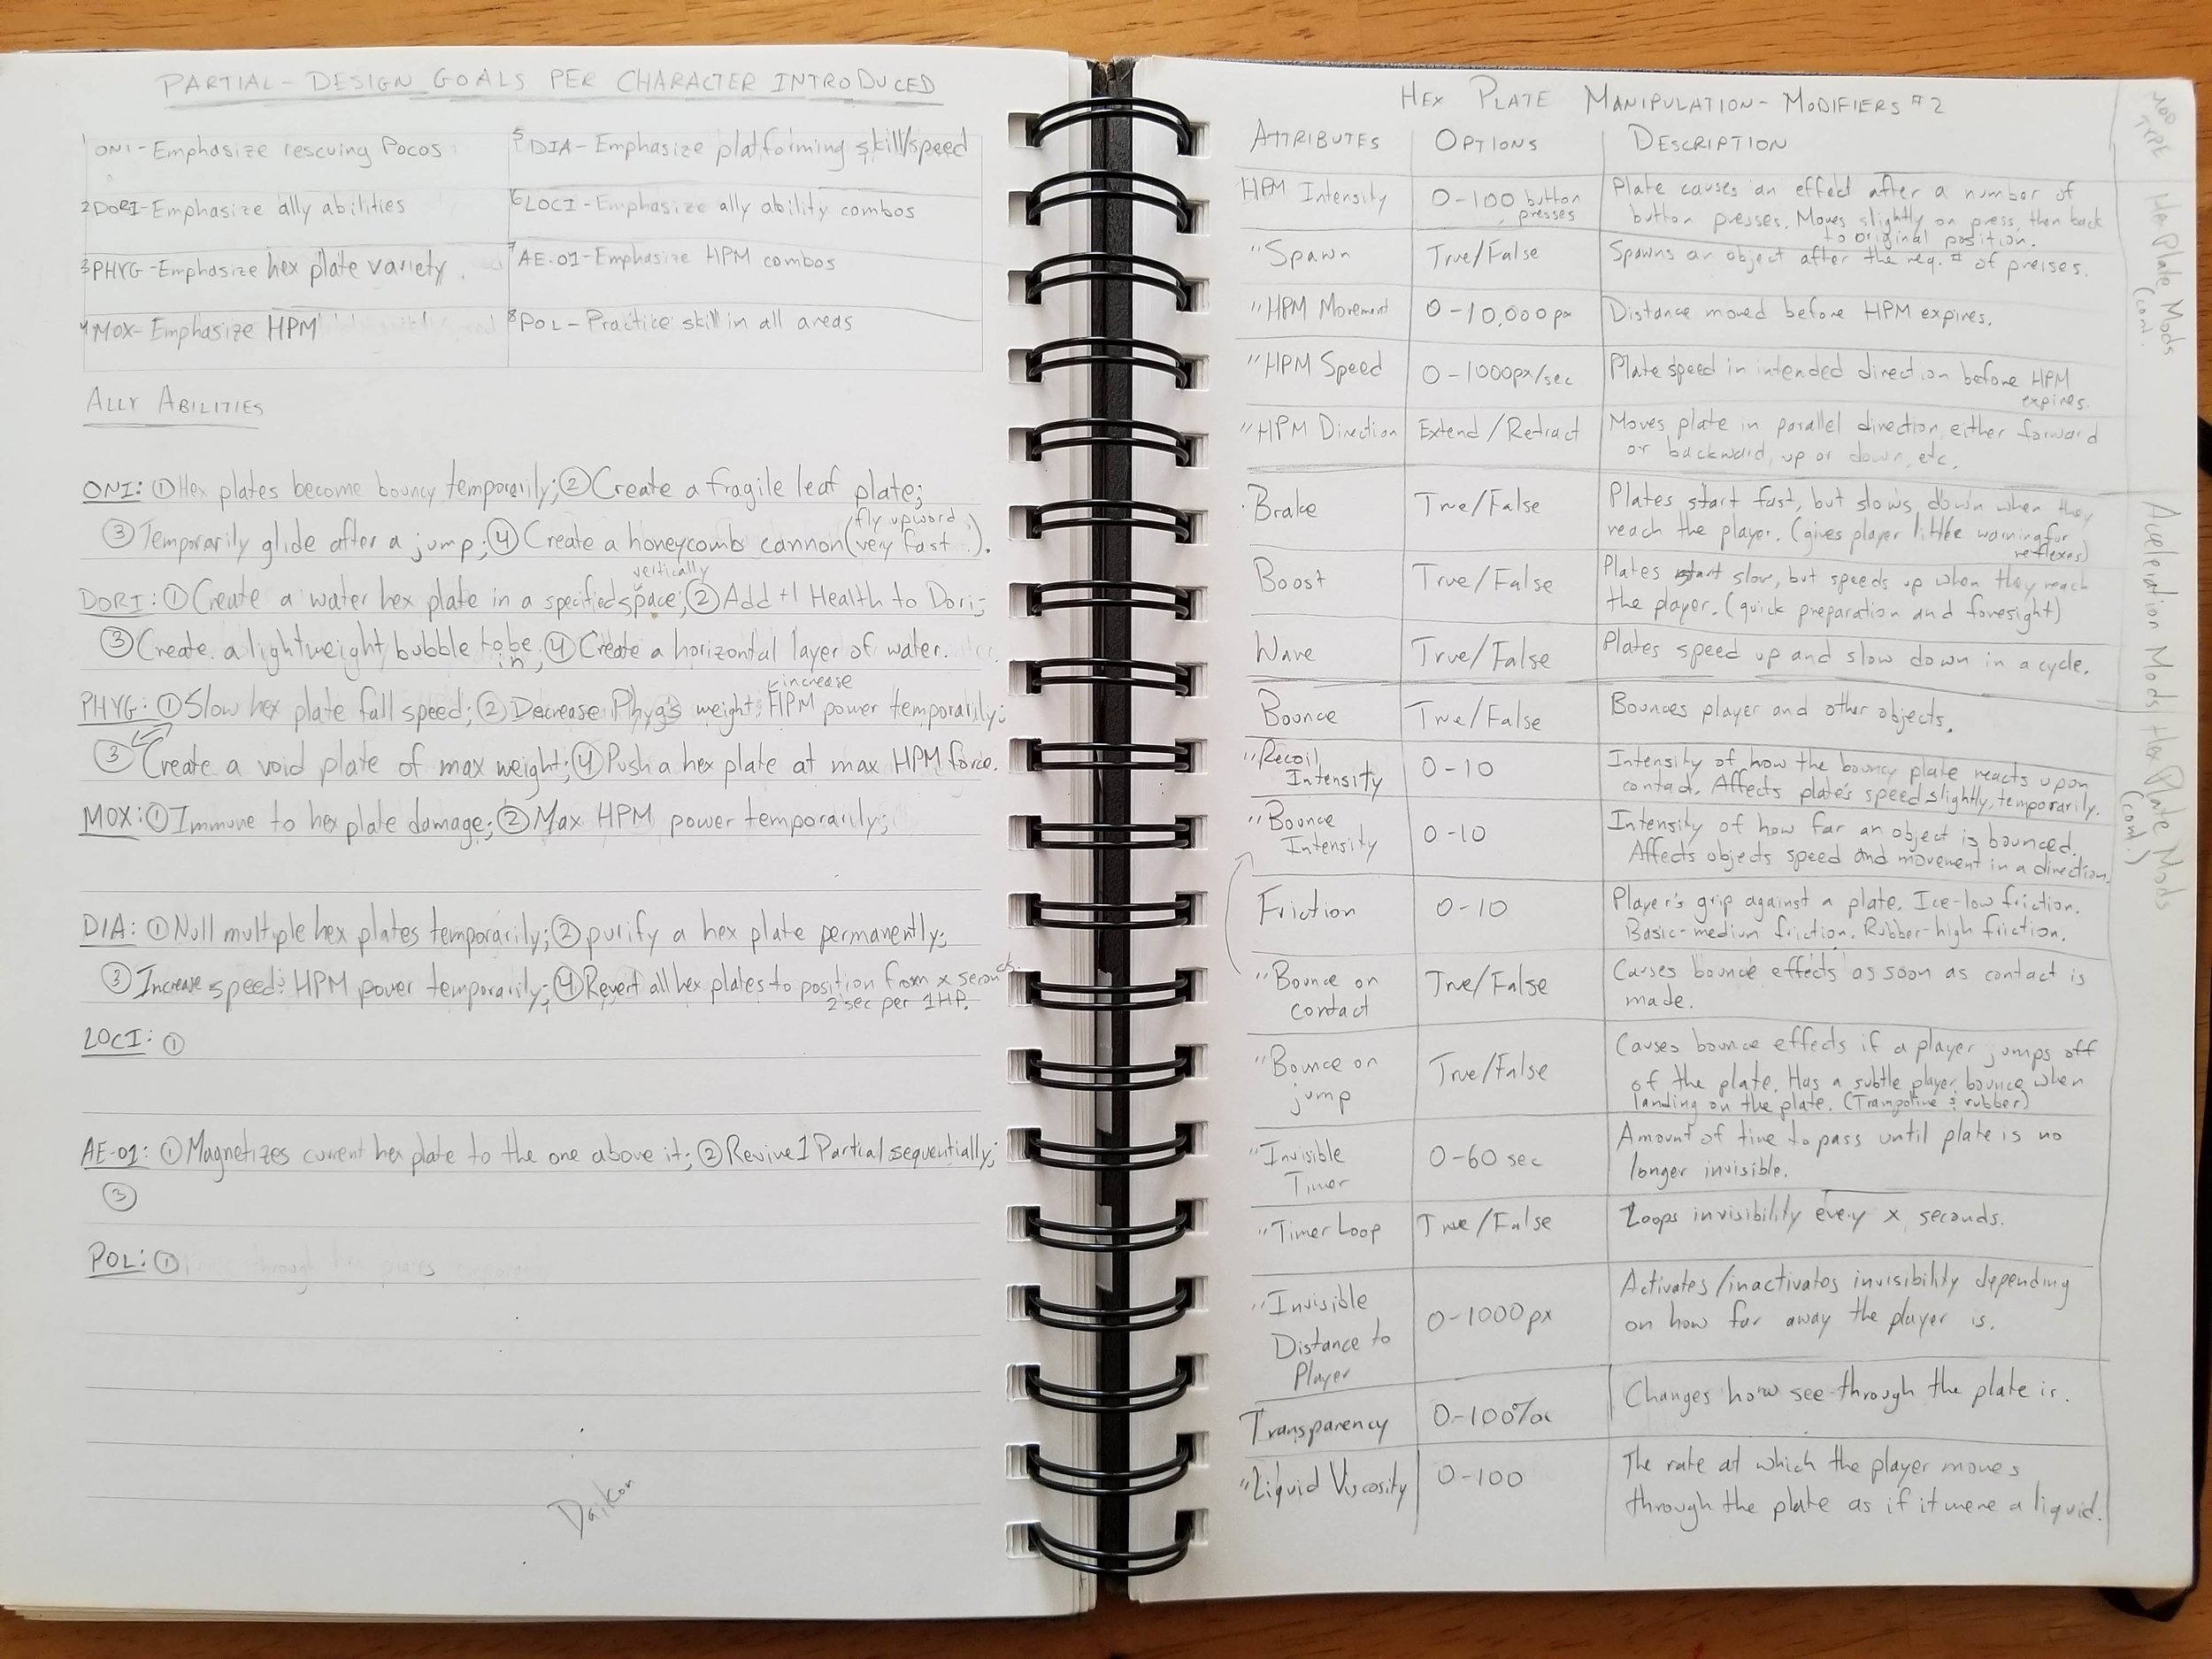 PARTIAL-DESIGN GOALS PER CHARACTER INTRODUCED
1 ONI-Emphasize rescuing Pocos
5 DIA-Emphasize platforming skill/speed
2 DORI-Emphasize ally abilities
6 LOCI-Emphasize ally ability combos
3 PHYG-Emphasize hex plate variety
7 AE-01-Emphasize HPM combos
4 MOX-Emphasize HPM
8 POL-Practice skill in all areas
ALLY ABILITIES
ONI: ① Hex plates become bouncy temporarily; ② Create a fragile leaf plate;
③ Temporarily glide after a jump; ④ Create a honeycomb cannon (fly upward very fast).
DORI: ① Create a water hex plate in a specified space vertically; ② Add +1 Health to Dori;
③ Create a lightweight bubble to be in; ④ Create a horizontal layer of water.
PHYG: ① Slow hex plate fall speed; ② Decrease Phyg's weight: increase HPM power temporarily;
③ Create a void plate of max weight; ④ Push a hex plate at max HPM force.
MOX: ① Immune to hex plate damage; ② Max HPM power temporarily;
DIA: ① Null multiple hex plates temporarily; ② purify a hex plate permanently;
③ Increase speed: HPM power temporarily; ④ Revert all hex plates to position from x seconds
2 sec per 1HP.
LOCI: ①
AE-01: ① Magnetizes current hex plate to the one above it; ② Revive 1 Partial sequentially;
③
POL: ①
Daikon
HEX PLATE MANIPULATION-MODIFIERS #2
ATTRIBUTES OPTIONS DESCRIPTION
MOD TYPE
HPM Intensity
0-100 button
presses
Plate causes an effect after a number of
button presses. Moves slightly on press, then back
to original position.
"Spawn
True/False
Spawns an object after the req. # of presses.
"HPM Movement
0-10,000px
Distance moved before HPM expires.
"HPM Speed
0-1000px/sec
Plate speed in intended direction before HPM
expires.
"HPM Direction
Extend/Retract
Moves plate in parallel direction, either forward
or backward, up or down, etc.
Hex Plate Mods
(cont.)
Brake
True/False
Plates start fast, but slows down when they
reach the player. (gives player little warning for
reflexes)
Boost
True/False
Plates start slow, but speeds up when they reach
the player. (quick preparation and foresight)
Wave
True/False
Plates speed up and slow down in a cycle.
Acceleration Mods
Bounce
True/False
Bounces player and other objects.
"Recoil
Intensity
0-10
Intensity of how the bouncy plate reacts upon
contact. Affects plate's speed slightly, temporarily.
"Bounce
Intensity
0-10
Intensity of how far an object is bounced.
Affects objects speed and movement in a direction.
Friction
0-10
Player's grip against a plate. Ice-low friction.
Basic-medium friction. Rubber-high friction.
"Bounce on
contact
True/False
Causes bounce effects as soon as contact is
made.
"Bounce on
jump
True/False
Causes bounce effects if a player jumps off
of the plate. Has a subtle player bounce when
landing on the plate. (Trampoline : rubber)
"Invisible
Timer
0-60 sec
Amount of time to pass until plate is no
longer invisible.
"Timer Loop
True/False
Loops invisibility every x seconds.
"Invisible
Distance to
Player
0-1000px
Activates/inactivates invisibility depending
on how far away the player is.
Transparency
0-100%
Changes how see-through the plate is.
"Liquid Viscosity
0-100
The rate at which the player moves
through the plate as if it were a liquid.
Hex Plate Mods
(cont.)